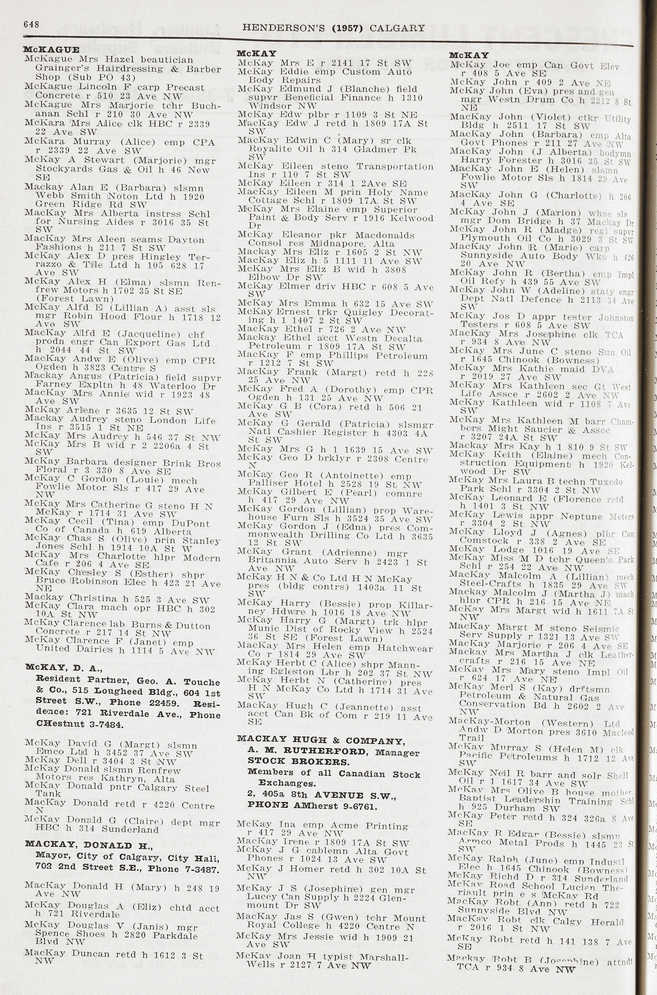 648
HENDERSON'S (1957) CALGARY
McKAGUE
McKague Mrs Hazel beautician
Grainger's Hairdressing & Barber
Shop (Sub PO 43)
McKague Lincoln F carp Precast
Concrete r 510 23 Ave NW
McKague Mrs Marjorie tchr Buch-
anan Schl r 210 30 Ave NW
McKara Mrs Alice clk HBC r 2339
22 Ave SW
McKara Murray (Alice) emp CPA
r 2339 22 Ave SW
McKay A Stewart (Marjorie) mgr
Stockyards Gas & Oil h 46 New
SE
Mackay Alan E (Barbara) slsmn
Webb Smith Noton Ltd h 1920
Green Ridge Rd SW
MacKay Mrs Alberta instrss Schl
for Nursing Aides r 3016 35 St
SW
MacKay Mrs Aleen seams Dayton
Fashions h 211 7 St SW
McKay Alex D pres Hingley Ter-
razzo & Tile Ltd h 105 628 17
Ave SW
McKay Alex H (Elma) slsmn Ren-
frew Motors h 1702 35 St SE
(Forest Lawn)
McKay Alfd E (Lillian A) asst sls
mgr Robin Hood Flour h 1718 12
Ave SW
MacKay Alfd E (Jacqueline) chf
prodn engr Can Export Gas Ltd
h 2044 44 St SW
MacKay Andw E (Olive) emp CPR
Ogden h 3823 Centre S
Mackay Angus (Patricia) field supvr
Farney Expltn h 48 Waterloo Dr
MacKay Mrs Annie wid r 1923 48
Ave SW
McKay Arlene r 3635 12 St SW
Mackay Audrey steno London Life
Ins r 3515 1 St NE
McKay Mrs Audrey h 546 37 St NW
McKay Mrs B wid r 2 2206a 4 St
SW
McKay Barbara designer Brink Bros
Floral r 3 330 8 Ave SE
McKay C Gordon (Louie) mech
Fowlie Motor Sls r 417 29 Ave
NW
McKay Mrs Catherine G steno H N
McKay r 1714 31 Ave SW
McKay Cecil (Tina) emp DuPont
Co of Canada h 619 Alberta
McKay Chas S (Olive) prin Stanley
Jones Schl h 1914 10A St W
McKay Mrs Charlotte hlpr Modern
Cafe r 206 4 Ave SE
McKay Chesley S (Esther) shpr
Bruce Robinson Elec h 423 21 Ave
NE
Mackay Christina h 525 3 Ave SW
McKay Clara mach opr HBC h 302
10A St NW
McKay Clarence lab Burns & Dutton
Concrete r 217 14 St NW
McKay Clarence F (Janet) emp
United Dairies h 1114 5 Ave NW
McKAY, D. A.,
Resident Partner, Geo. A. Touche
& Co., 515 Lougheed Bldg., 604 1st
Street S.W., Phone 22459. Resi-
dence: 721 Riverdale Ave., Phone
CHestnut 3-7484.
McKay David G (Margt) slsmn
Emco Ltd h 3452 37 Ave SW
McKay Dell r 3404 3 St NW
McKay Donald slsmn Renfrew
Motors res Kathryn, Alta
McKay Donald pntr Calgary Steel
Tank
McKay Donald retd r 4220 Centre
N
McKay Donald G (Claire) dept mgr
HBC h 314 Sunderland
MACKAY, DONALD H.,
Mayor, City of Calgary, City Hall,
702 2nd Street S.E., Phone 7-3487.
MacKay Donald H (Mary) h 248 19
Ave NW
McKay Douglas A (Eliz) chtd acct
h 721 Riverdale
McKay Douglas V (Janis) mgr
Spence Shoes h 2820 Parkdale
Blvd NW
MacKay Duncan retd h 1612 3 St
NW
McKAY
McKay Mrs E r 2141 17 St SW
McKay Eddie emp Custom Auto
Body Repairs
McKay Edmund J (Blanche) field
supvr Beneficial Finance h 1310
Windsor NW
McKay Edw plbr r 1109 3 St NE
McKay Edw J retd h 1809 17A St
SW
MacKay Edwin C (Mary) sr clk
Royalite Oil h 314 Gladmer Pk
SW
McKay Eileen steno Transportation
Ins r 110 7 St SW
McKay Eileen r 314 1 2Ave SE
McKay Eileen M prin Holy Name
Cottage Schl r 1809 17A St SW
McKay Mrs Elaine emp Superior
Paint & Body Serv r 1916 Kelwood
Dr
McKay Eleanor pkr Macdonalds
Consol res Midnapore, Alta
Mackay Mrs Eliz r 1605 2 St NW
McKay Eliz h 5 1111 11 Ave SW
McKay Mrs Eliz B wid h 3808
Elbow Dr SW
McKay Elmer driv HBC r 608 5 Ave
SW
McKay Mrs Emma h 632 15 Ave SW
McKay Ernest trkr Quigley Decorat-
ing h 1 1407 2 St SW
MacKay Ethel r 726 2 Ave NW
Mackay Ethel acct Westn Decalta
Petroleum r 1809 17A St SW
MacKay F emp Phillips Petroleum
r 1212 7 St SW
MacKay Frank (Margt) retd h 228
25 Ave NW
McKay Fred A (Dorothy) emp CPR
Ogden h 131 25 Ave NW
McKay G B (Cora) retd h 506 21
Ave SW
McKay G Gerald (Patricia) slsmgr
Natl Cashier Register h 4303 4A
St SW
McKay Mrs G h 1 1639 15 Ave SW
McKay Geo D brklyr r 2308 Centre
N
McKay Geo R (Antoinette) emp
Palliser Hotel h 2528 19 St NW
McKay Gilbert E (Pearl) comnre
h 417 29 Ave NW
McKay Gordon (Lillian) prop Ware-
house Furn Sls h 3524 35 Ave SW
McKay Gordon J (Edna) pres Com-
monwealth Drilling Co Ltd h 3635
12 St SW
McKay Grant (Adrienne) mgr
Britannia Auto Serv h 2423 1 St
Ave NW
McKay H N & Co Ltd H N McKay
pres (bldg contrs) 1403a 11 St
SW
McKay Harry (Bessie) prop Killar-
ney Hdwre h 1016 18 Ave NW
McKay Harry G (Margt) trk hlpr
Munic Dist of Rocky View h 2524
36 St SE (Forest Lawn)
McKay Mrs Helen emp Hatchwear
Co r 1814 29 Ave SW
McKay Herbt C (Alice) shpr Mann-
ing Egleston Lbr h 202 37 St NW
McKay Herbt N (Catherine) pres
H N McKay Co Ltd h 1714 31 Ave
SW
MacKay Hugh C (Jeannette) asst
acct Can Bk of Com r 219 11 Ave
SE
MACKAY HUGH & COMPANY,
A. M. RUTHERFORD, Manager
STOCK BROKERS.
Members of all Canadian Stock
Exchanges.
2, 405a 8th AVENUE S.W.,
PHONE AMherst 9-6761.
McKay Ina emp Acme Printing
r 417 29 Ave NW
MacKay Irene r 1809 17A St SW
McKay J G cablemn Alta Govt
Phones r 1024 13 Ave SW
McKay J Homer retd h 302 10A St
NW
McKay J S (Josephine) gen mgr
Lucey Can Supply h 2224 Glen-
mount Dr SW
MacKay Jas S (Gwen) tchr Mount
Royal College h 4220 Centre N
McKay Mrs Jessie wid h 1909 21
Ave SW
McKay Joan H typist Marshall-
Wells r 2127 7 Ave NW
McKAY
McKay Joe emp Can Govt Elev
r 408 5 Ave SE
McKay John r 409 2 Ave NE
McKay John (Eva) pres and gen
mgr Westn Drum Co h 2212 8 St
NE
MacKay John (Violet) ctkr Utility
Bldg h 2511 17 St SW
MacKay John (Barbara) emp Alta
Govt Phones r 211 27 Ave NW
MacKay John (J Alberta) bodymn
Harry Forester h 3016 35 St SW
McKay John E (Helen) slsmn
Fowlie Motor Sls h 1814 29 Ave
SW
McKay John G (Charlotte) h 206
4 Ave SE
McKay John J (Marion) whse sls
mgr Dom Bridge h 37 Mackay Dr
McKay John R (Madge) regl supvr
Plymouth Oil Co h 3029 3 St SW
MacKay John R (Marie) carp
Sunnyside Auto Body Wks h 426
20 Ave NW
McKay John R (Bertha) emp Impl
Oil Refy h 439 55 Ave SW
McKay John W (Adeline) staty engr
Dept Natl Defence h 2113 34 Ave
SW
McKay Jos D appr tester Johnston
Testers r 608 5 Ave SW
McKay Mrs Josephine clk TCA
r 934 8 Ave NW
McKay Mrs June C steno Sun Oil
r 1645 Chinook (Bowness)
McKay Mrs Kathie maid DVA
r 2019 27 Ave SW
McKay Mrs Kathleen sec Gt West
Life Assce r 2602 2 Ave NW
McKay Kathleen wid r 1108 7 Ave
SW
McKay Mrs Kathleen M barr Cham-
bers Might Saucier & Assoc
r 3207 24A St SW
Mackay Mrs Kay h 1 810 9 St SW
McKay Keith (Elaine) mech Con-
struction Equipment h 1920 Kel-
wood Dr SW
McKay Mrs Laura B techn Tuxedo
Park Schl r 3304 2 St NW
McKay Leonard E (Florence retd
h 1401 3 St NW
McKay Lewis appr Neptune Meters
r 3304 2 St NW
McKay Lloyd J (Agnes) plbr Can
Comstock r 338 2 Ave SE
McKay Lodge 1016 19 Ave SE
McKay Miss M D tchr Queen's Park
Schl r 254 22 Ave NW
MacKay Malcolm A (Lillian) mech
Steel-Crafts h 1835 29 Ave SW
Mackay Malcolm J (Martha J) mach
hlpr CPR h 216 15 Ave NE
McKay Mrs Margt wid h 1611 7A St
NW
McKay Margt M steno Seismic
Serv Supply r 1321 13 Ave SW
McKay Marjorie r 206 4 Ave SE
Mackay Mrs Martha J clk Leather-
crafts r 216 15 Ave NE
McKay Mrs Mary steno Impl Oil
r 624 17 Ave NE
McKay Merl S (Kay) drftsmn
Petroleum & Natural Gas
Conservation Bd h 2602 2 Ave
NW
MacKay-Morton (Western) Ltd
Andw D Morton pres 3610 Macleod
Trail
McKay Murray S (Helen M) clk
Pacific Petroleums h 1712 12 Ave
SW
McKay Neil R barr and solr Shell
Oil r 1 1617 34 Ave SW
McKay Mrs Olive B house mother
Baptist Leadership Training Schl
h 925 Durham SW
McKay Peter retd h 324 326a 8 Ave
SE
MacKay R Edgar (Bessie) slsmn
Armco Metal Prods h 1445 23 St
SW
McKay Ralph (June) emp Industl
Elec h 1645 Chinook (Bowness)
McKay Richd D r 314 Sunderland
McKay Road School Lucien The-
riault prin e s McKay Rd
MacKay Robt (Ann) retd h 722
Sunnyside Blvd NW
MacKay Robt clk Calgy Herald
r 2016 1 St NW
McKay Robt retd h 141 138 7 Ave
SE
Mackay Robt B (Josephine) attndt
TCA r 934 8 Ave NW